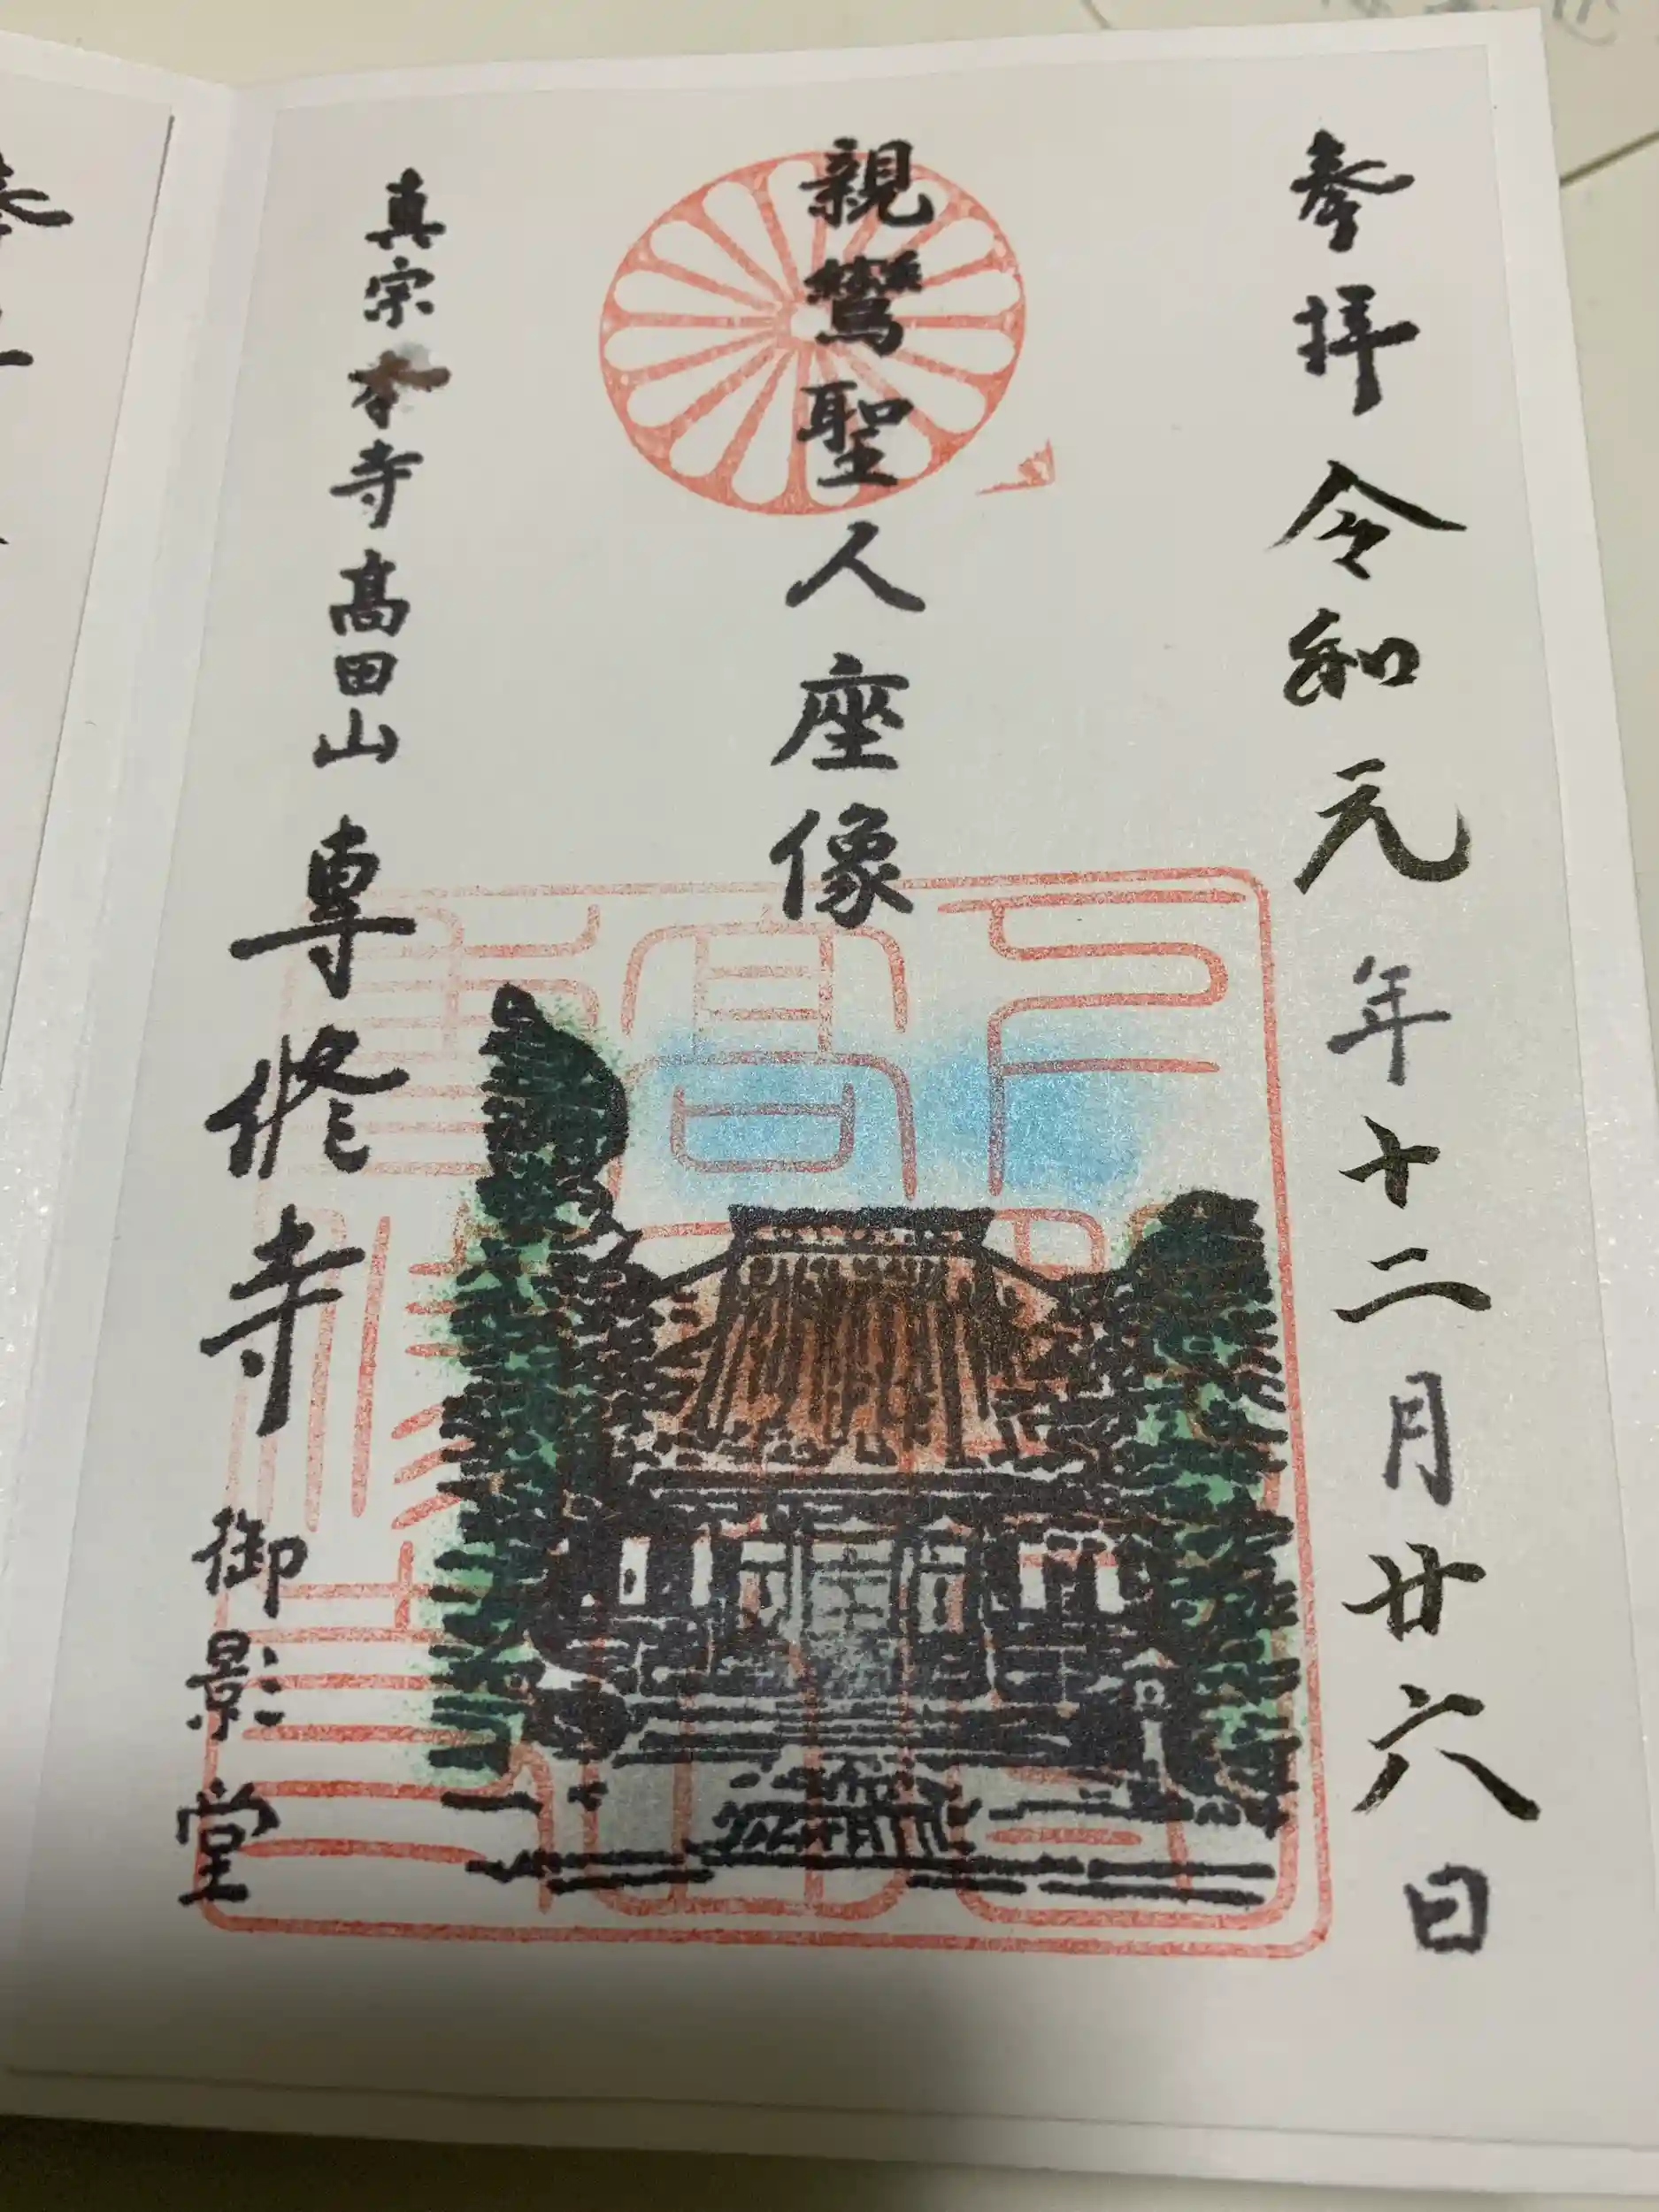 奉拝 令和元年十二月廿六日
親鸞聖人座像
真宗本寺高田山 専修寺 御影堂